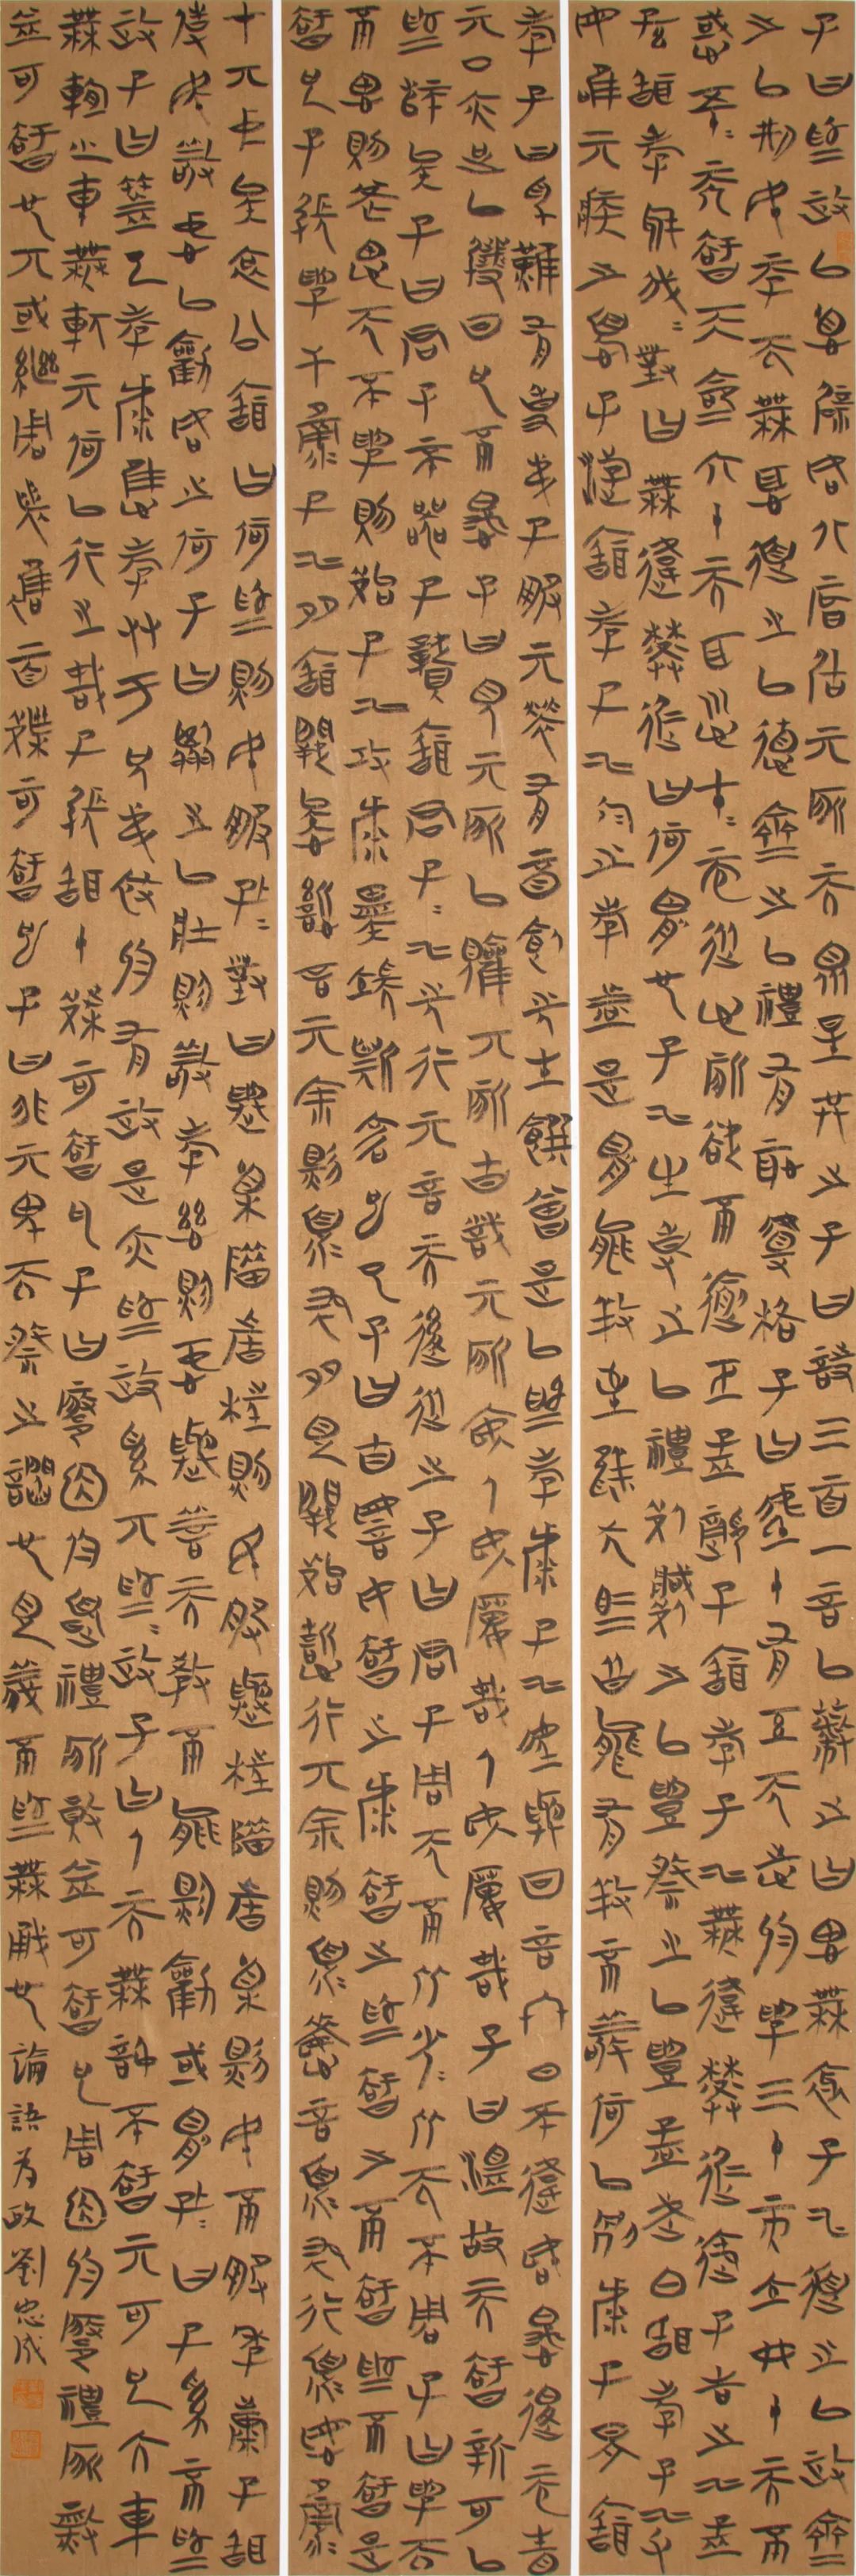 子曰為政以德辟如北辰居其所而眾星共之子曰詩三百一言以蔽之曰思無邪子曰道之以政齊
之以刑民免而無恥道之以德齊之以禮有恥且格子曰吾十有五而志於學三十而立四十而不
惑五十而知天命六十而耳順七十而從心所欲不踰矩孟懿子問孝子曰無違樊遲御子告之曰孟
孫問孝於我我對曰無違樊遲曰何謂也子曰生事之以禮死葬之以禮祭之以禮孟武伯問孝子曰父
母唯其疾之憂子游問孝子曰今之孝者是謂能養至於犬馬皆能有養不敬何以別乎子夏問
孝子曰色難有事弟子服其勞有酒食先生饌曾是以為孝乎子曰吾與回言終日不違如愚退而省
其私亦足以發回也不愚子曰視其所以觀其所由察其所安人焉廋哉人焉廋哉子曰溫故而知新可以
為師矣子曰君子不器子貢問君子子曰先行其言而後從之子曰君子周而不比小人比而不周子曰學而不
思則罔思而不學則殆子曰攻乎異端斯害也已子曰由誨女知之乎知之為知之不知為不知是
知也子張學干祿子曰多聞闕疑慎言其餘則寡尤多見闕殆慎行其餘則寡悔言寡尤行寡悔祿
在其中矣哀公問曰何為則民服孔子對曰舉直錯諸枉則民服舉枉錯諸直則民不服季康子問
使民敬忠以勸如之何子曰臨之以莊則敬孝慈則忠舉善而教不能則勸或謂孔子曰子奚不為
政子曰書云孝乎惟孝友于兄弟施於有政是亦為政奚其為為政子曰人而無信不知其可也大車
無輗小車無軏其何以行之哉子張問十世可知也子曰殷因於夏禮所損益可知也周因於殷禮所損
益可知也其或繼周者雖百世可知也子曰非其鬼而祭之諂也見義不為無勇也論語為政劉忠成